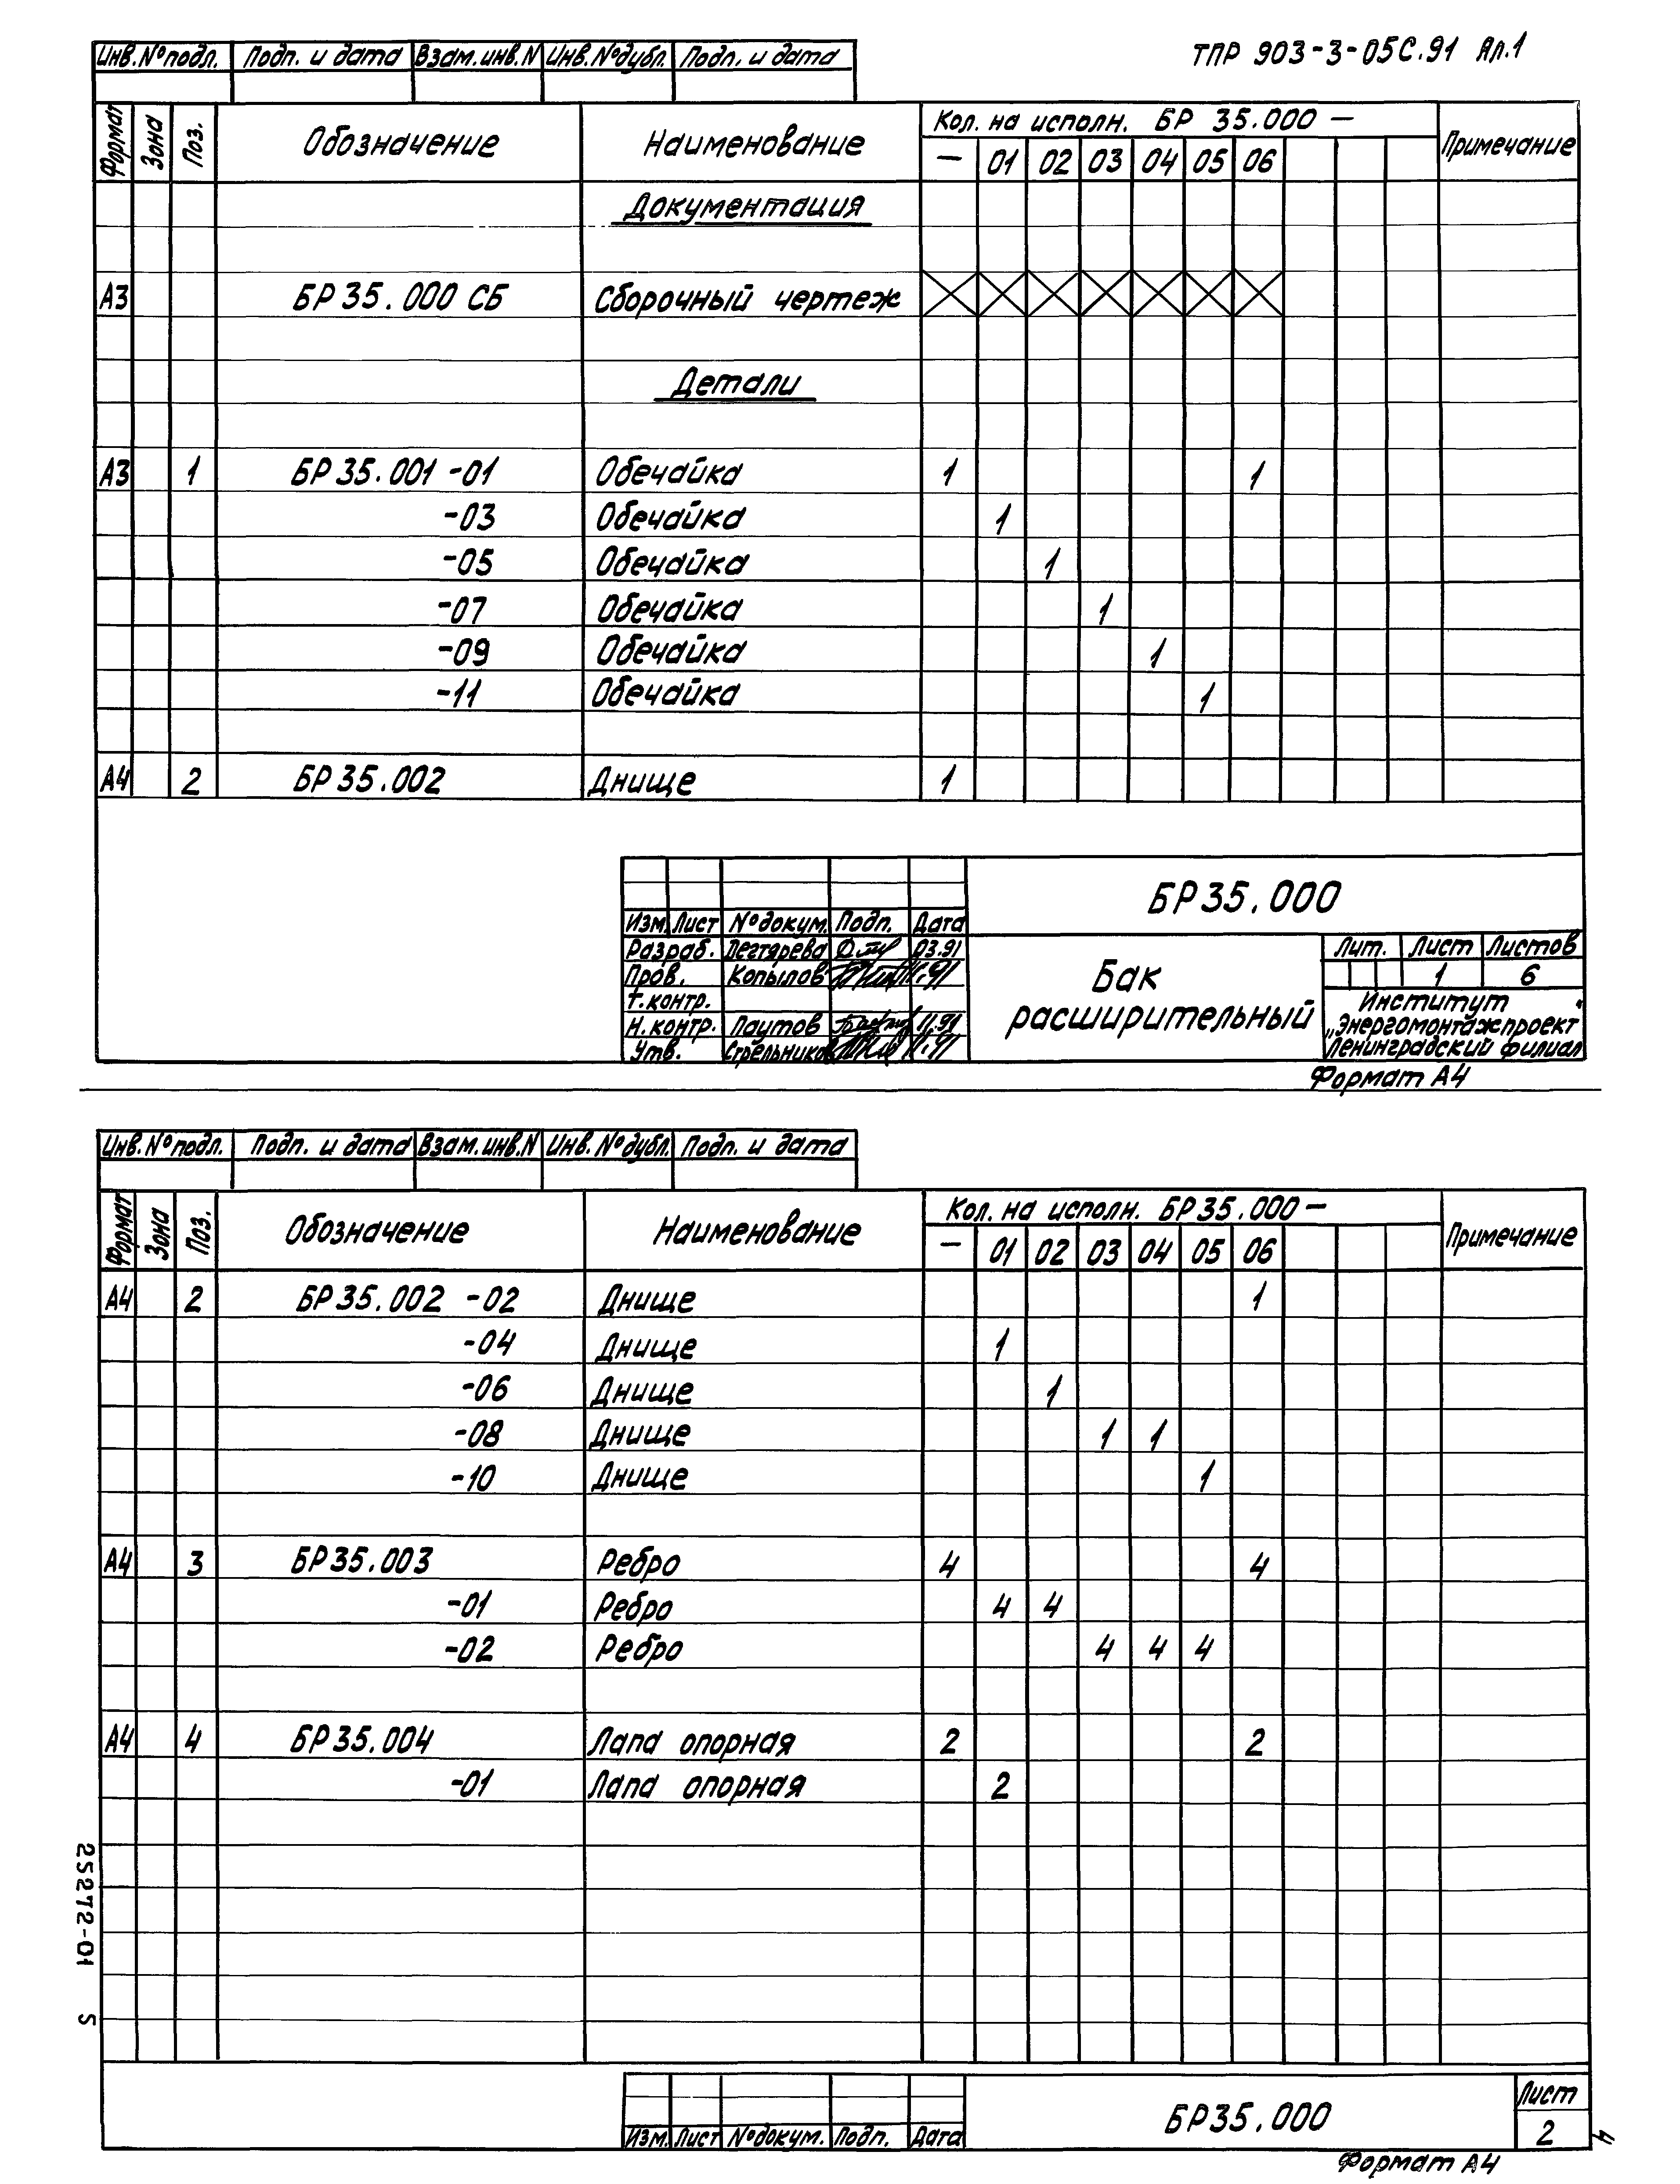 ТПР 903-3-05С.91 Ал.1
Инв.№ подл. Подп. и дата Взам.инв.N Инв.№дубл. Подп. и дата
Формат Зона Поз. Обозначение Наименование Кол. на исполн. БР 35.000 — Примечание
— 01 02 03 04 05 06
Документация
А3 БР 35.000 СБ Сборочный чертеж
Детали
А3 1 БР 35.001 -01 Обечайка 1 1
-03 Обечайка 1
-05 Обечайка 1
-07 Обечайка 1
-09 Обечайка 1
-11 Обечайка 1
А4 2 БР 35.002 Днище 1
БР35.000
Изм. Лист № докум. Подп. Дата
Разраб. Дегтярева 03.91
Пров. Копылов
Т.контр.
Н.контр. Паутов 11.91
Утв. Стрельников
Бак
расширительный
Лит. Лист Листов
1 6
Институт
„Энергомонтажпроект“
Ленинградский филиал
Формат А4
Инв.№ подл. Подп. и дата Взам.инв.N Инв.№дубл. Подп. и дата
Формат Зона Поз. Обозначение Наименование Кол. на исполн. БР35.000 — Примечание
— 01 02 03 04 05 06
А4 2 БР35.002 -02 Днище 1
-04 Днище 1
-06 Днище 1
-08 Днище 1 1
-10 Днище 1
А4 3 БР35.003 Ребро 4 4
-01 Ребро 4 4
-02 Ребро 4 4 4
А4 4 БР35.004 Лапа опорная 2 2
-01 Лапа опорная 2
25272-01 5
Изм. Лист № докум. Подп. Дата
БР35.000
Лист
2
4
Формат А4